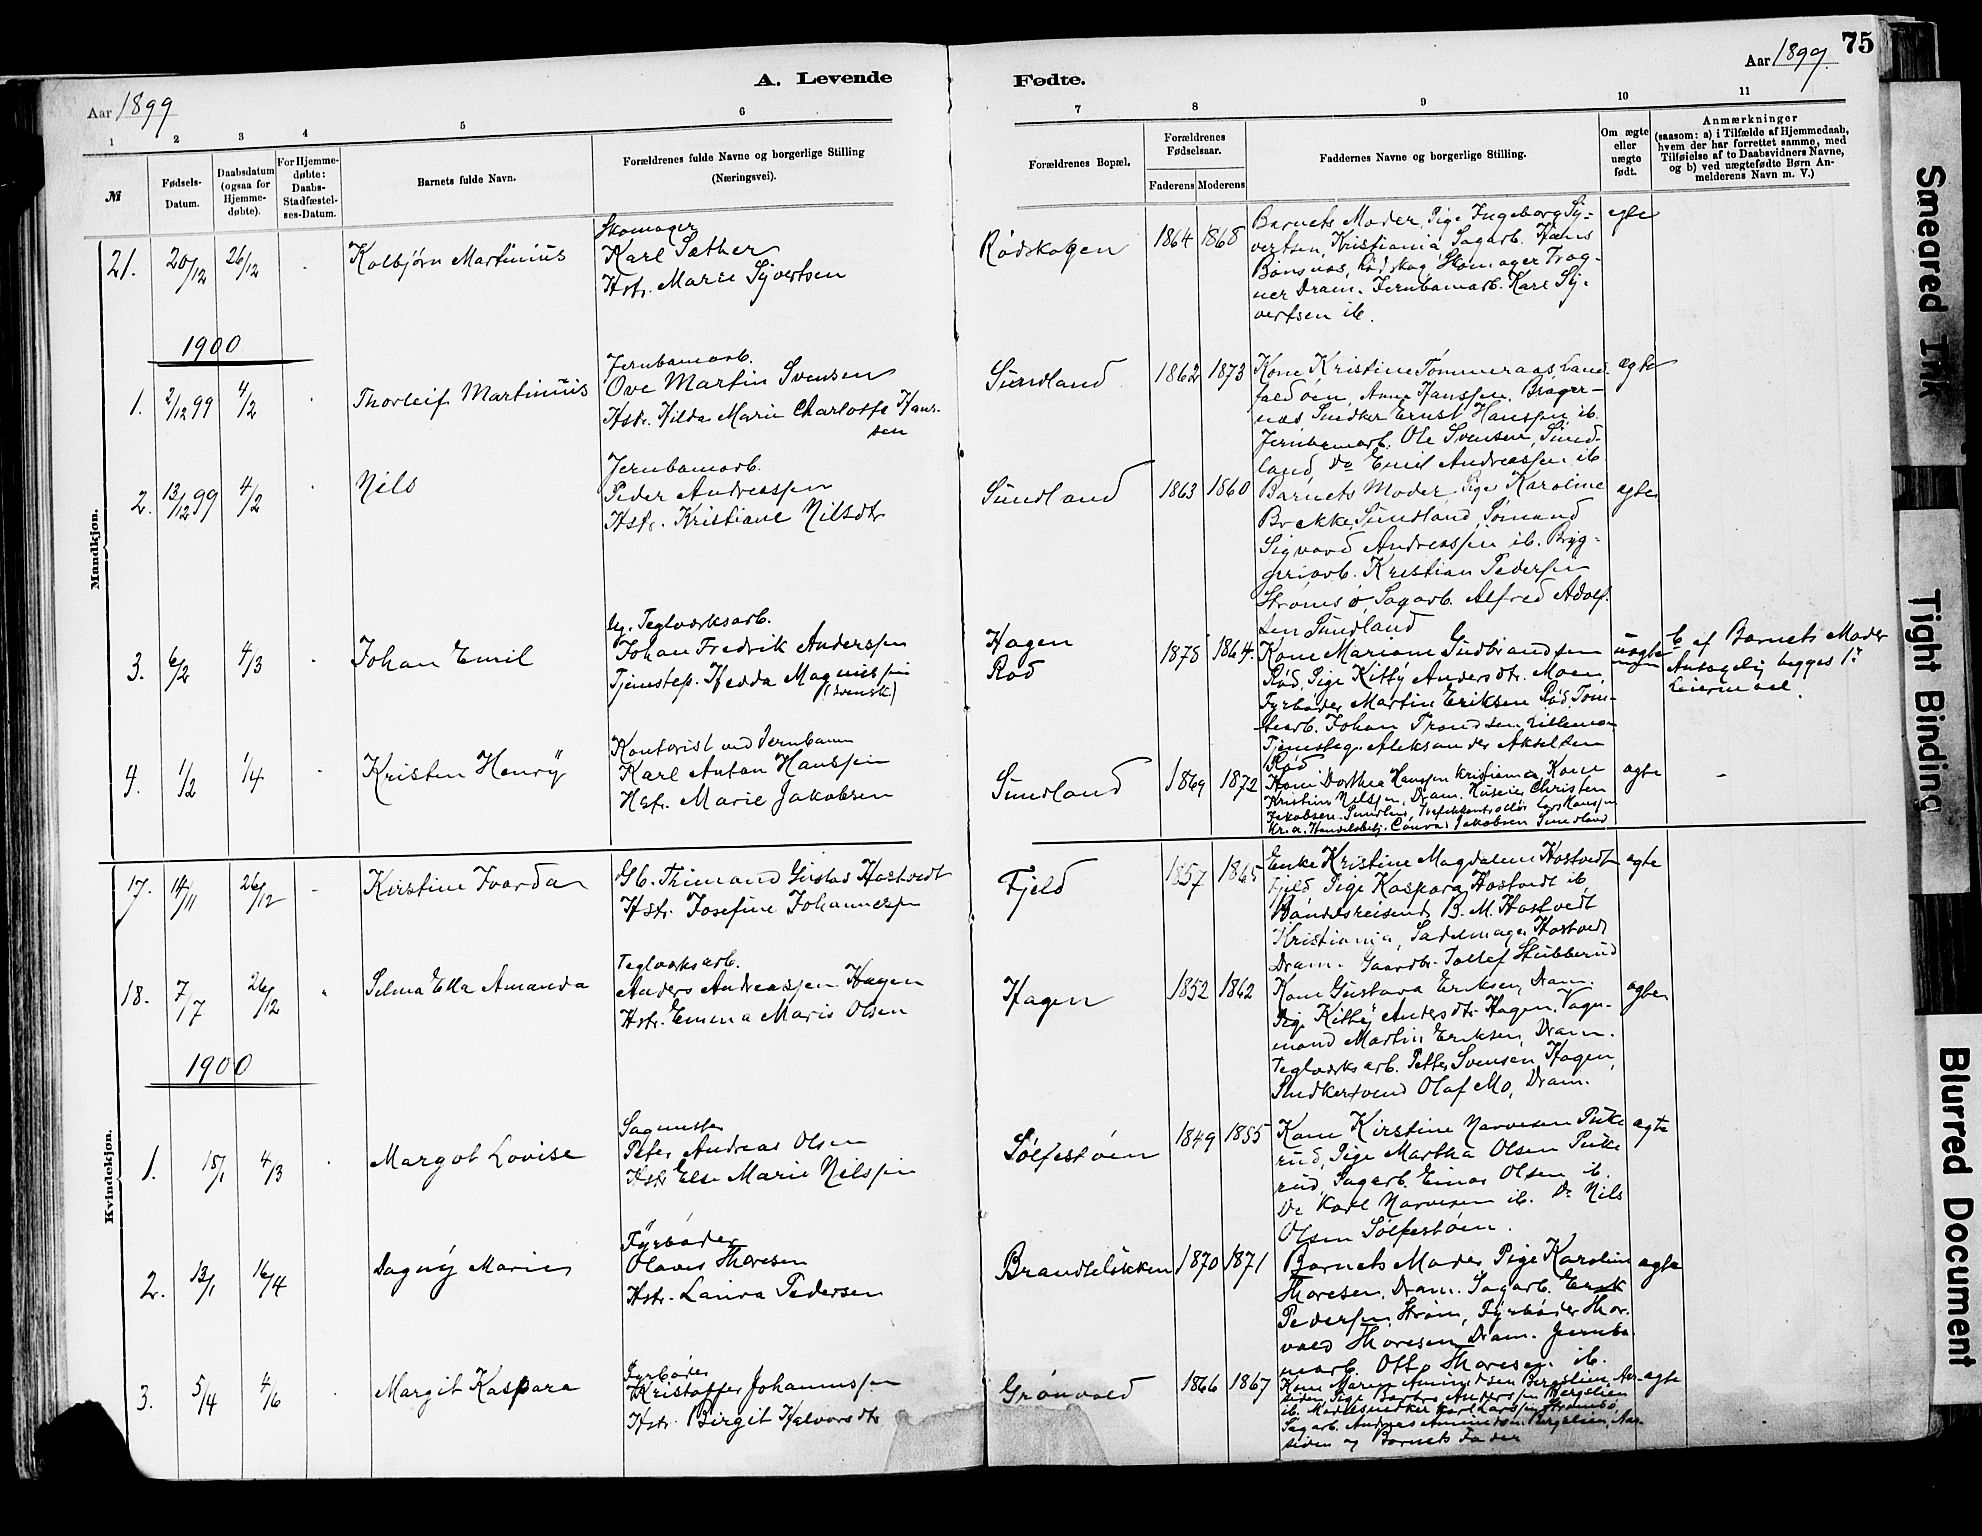 75
Aar 1899
A. Levende Fødte.
Aar 1899.
1 2 3 4 5 6 7 8 9 10 11
№
Fødsels-
Datum.
Daabsdatum
(ogsaa for
Hjemme-
døbte).
For Hjemme-
døbte:
Daabs-
Stadfæstel-
ses-Datum.
Barnets fulde Navn.
Forældrenes fulde Navne og borgerlige Stilling
(Næringsvei).
Forældrenes Bopæl.
Forældrenes
Fødselsaar.
Faderens Moderens
Faddernes Navne og borgerlige Stilling.
Om ægte
eller
uægte
født.
Anmærkninger
(saasom: a) i Tilfælde af Hjemmedaab,
hvem der har forrettet samme, med
Tilføielse af to Daabsvidners Navne,
og b) ved uægtefødte Børn An-
melderens Navn m. V.)
Mandkjøn.
21. 20/12 26/12 Kolbjørn Martinius
Skomager
Karl Sæther
Hstr. Marie Syvertsen
Rødskogen 1864 1868
Barnets Moder, Pige Ingeborg Sy-
vertsen, Kristiania Sagarb. Hans
Bønsnæs, Rødskog Skomager Trog-
ner Dram. Jernbanarb. Karl Sy-
vertsen ib.
egte
1900
1. 2/12 99 4/2 Thorleif Martinius
Jernbanarb.
Ove Martin Svensen
Hstr. Hilda Marie Charlotte Han-
sen
Sundland 1862 1873
Kone Kristine Tømmeraas Land-
faldøen, Anne Hanssen, Brager-
næs, Snedker Ernst Hanssen ib.
Jernbanarb. Ole Svensen, Sund-
land, Do Emil Andreassen ib.
ægte
2. 13/12 99 4/2 Nils
Jernbanarb.
Peder Andreassen
Hstr. Kristiane Nilsdtr
Sundland 1863 1860
Barnets Moder, Pige Karoline
Brekke, Sundland, Sømand
Sigvard Andreassen ib. Bryg-
geriarb. Kristian Pedersen
Strømsø, Sagarb. Alfred Adolf-
sen Sundland
ægte
3. 6/2 4/3 Johan Emil
Ug. Teglværksarb.
Johan Fredrik Anderssen
Tjenstep. Hedda Magnussen
(svensk)
Hagen
Rød
1875 1864
Kone Mariane Gudbrandsen
Rød, Pige Kitty Andersdtr. Moen,
Fyrbøder Martin Eriksen Rød Tom-
tearb. Johan Trondsen Lillemo
Tjenestegr. Aleksander Akselsen
Rød
uægte
b af Barnets Moder
Antagelig begges 1ste
Leiermaal.
4. 1/2 1/4 Kristen Henry
Kontorist ved Jernbanen
Karl Anton Hanssen
Hstr. Marie Jakobsen
Sundland 1869 1872
Kone Dorthea Hanssen Kristiania, Kone
Kristine Nilssen, Dram. Huseier Christen
Jakobsen Sundland, Lars Hanssen
Kr.a. Handelsbetj. Conrad Jakobsen Sundland
ægte
Kvindekjøn.
17. 14/11 26/12 Kirstine Ivarda
Gb. Thimand Gustav Hostvedt
Hstr. Josefine Johannessen
Fjeld 1857 1865
Enke Kristine Magdalene Hostvedt
Fjeld, Pige Kaspara Hostvedt ib.
Handelsreisende B. M. Hostvedt
Kristiania, Sadelmager Hostvedt
Dram. Gaardbr. Tollef Stubberud
ægte
18. 7/7 26/12 Selma Ella Amanda
Teglværksarb.
Anders Andreassen Hagen
Hstr. Emma Marie Olsen
Hagen 1852 1862
Kone Gustava Eriksen, Dram.
Pige Kitty Andersdtr. Hagen, Vogn-
mand Martin Eriksen, Dram.
Teglværksarb. Petter Svensen, Hagen,
Snedkersvend Olaf Mo, Dram.
ægte
1900
1. 15/1 4/3 Margot Lovise
Sagmester
Peter Andreas Olsen
Hstr Else Marie Nilssen
Sølfestøen 1849 1855
Kone Kirstine Narvesen Puke-
rud, Pige Martha Olsen Puke-
rud, Sagarb. Einar Olsen ib.
Do Karl Narvesen ib. Do Nils
Olsen Sølfestøen.
ægte
2. 13/1 16/4 Dagny Marie
Fyrbøder
Olaves Thoresen
Hstr. Laura Pedersen
Brandteløkken 1870 1871
Barnets Moder, Pige Karoline
Thoresen, Dram. Sagarb. Erik
Pedersen, Strøm, Fyrbøder Thor-
vald Thoresen Dram. Jernba-
nearb. Otto Thoresen ib.
ægte
3. 5/4 4/6 Margit Kaspara
Fyrbøder
Kristoffer Johannessen
Hstr. Birgit Halvorsdtr
Grønvold 1866 1867
Kone Maren Amundsen Bergslien Aas-
siden, Pige Anderssen Bergslien
ib. Modelsnedker Karl Larssen Strømsø,
Sagarb. Andreas Amundsen Bergslien, Aas-
siden og Barnets Fader
ægte
Smeared Ink
Tight Binding
Blurred Document